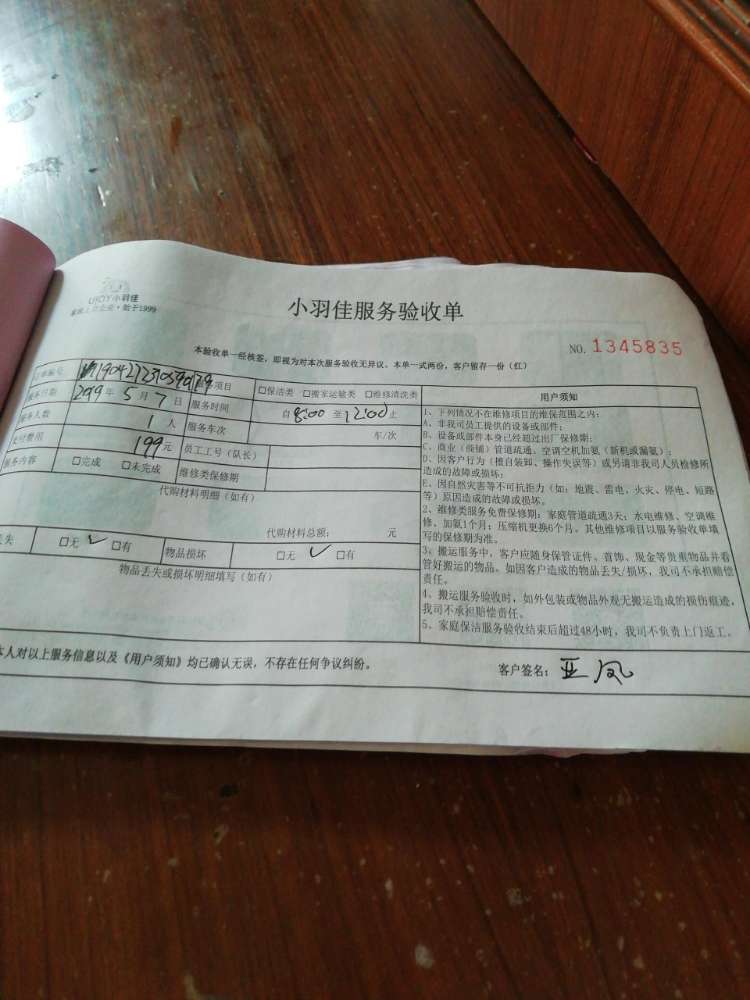 UJOY小羽佳
家政上市企业·始于1999
小羽佳服务验收单
NO. 1345835
本验收单一经核签，即视为对本次服务验收无异议。本单一式两份，客户留存一份（红）
订单编号 项目 □保洁类 □搬家运输类 □维修清洗类
服务日期 2019年5月7日 服务时间 自8:00至12:00止
服务人数 1人 服务车次 车/次
支付费用 199元 员工工号（队长）
服务内容 □完成 □未完成 维修类保修期
代购材料明细（如有）
代购材料总额： 元
丢失 □无 ✓ □有 物品损坏 □无 ✓ □有
物品丢失或损坏明细填写（如有）
用户须知
1、下列情况不在维修项目的维保范围之内：
A、非我司员工提供的设备或部件；
B、设备或部件本身已经超过出厂保修期；
C、商业（店铺）管道疏通、空调空机加氨（新机或漏氨）；
D、因客户行为（擅自装卸、操作失误等）或另请非我司人员检修所
造成的故障或损坏；
E、因自然灾害等不可抗力（如：地震、雷电、火灾、停电、短路
等）原因造成的故障或损坏。
2、维修类服务免费保修期：家庭管道疏通3天；水电维修、空调维
修、加氨1个月；压缩机更换6个月。其他维修项目以服务验收单填
写的保修期为准。
3、搬运服务中，客户应随身保管证件、首饰、现金等贵重物品并看
管好搬运的物品。如因客户造成的物品丢失/损坏，我司不承担赔偿
责任。
4、搬运服务验收时，如外包装或物品外观无搬运造成的损伤痕迹，
我司不承担赔偿责任。
5、家庭保洁服务验收结束后超过48小时，我司不负责上门返工。
本人对以上服务信息以及《用户须知》均已确认无误，不存在任何争议纠纷。
客户签名：亚凤